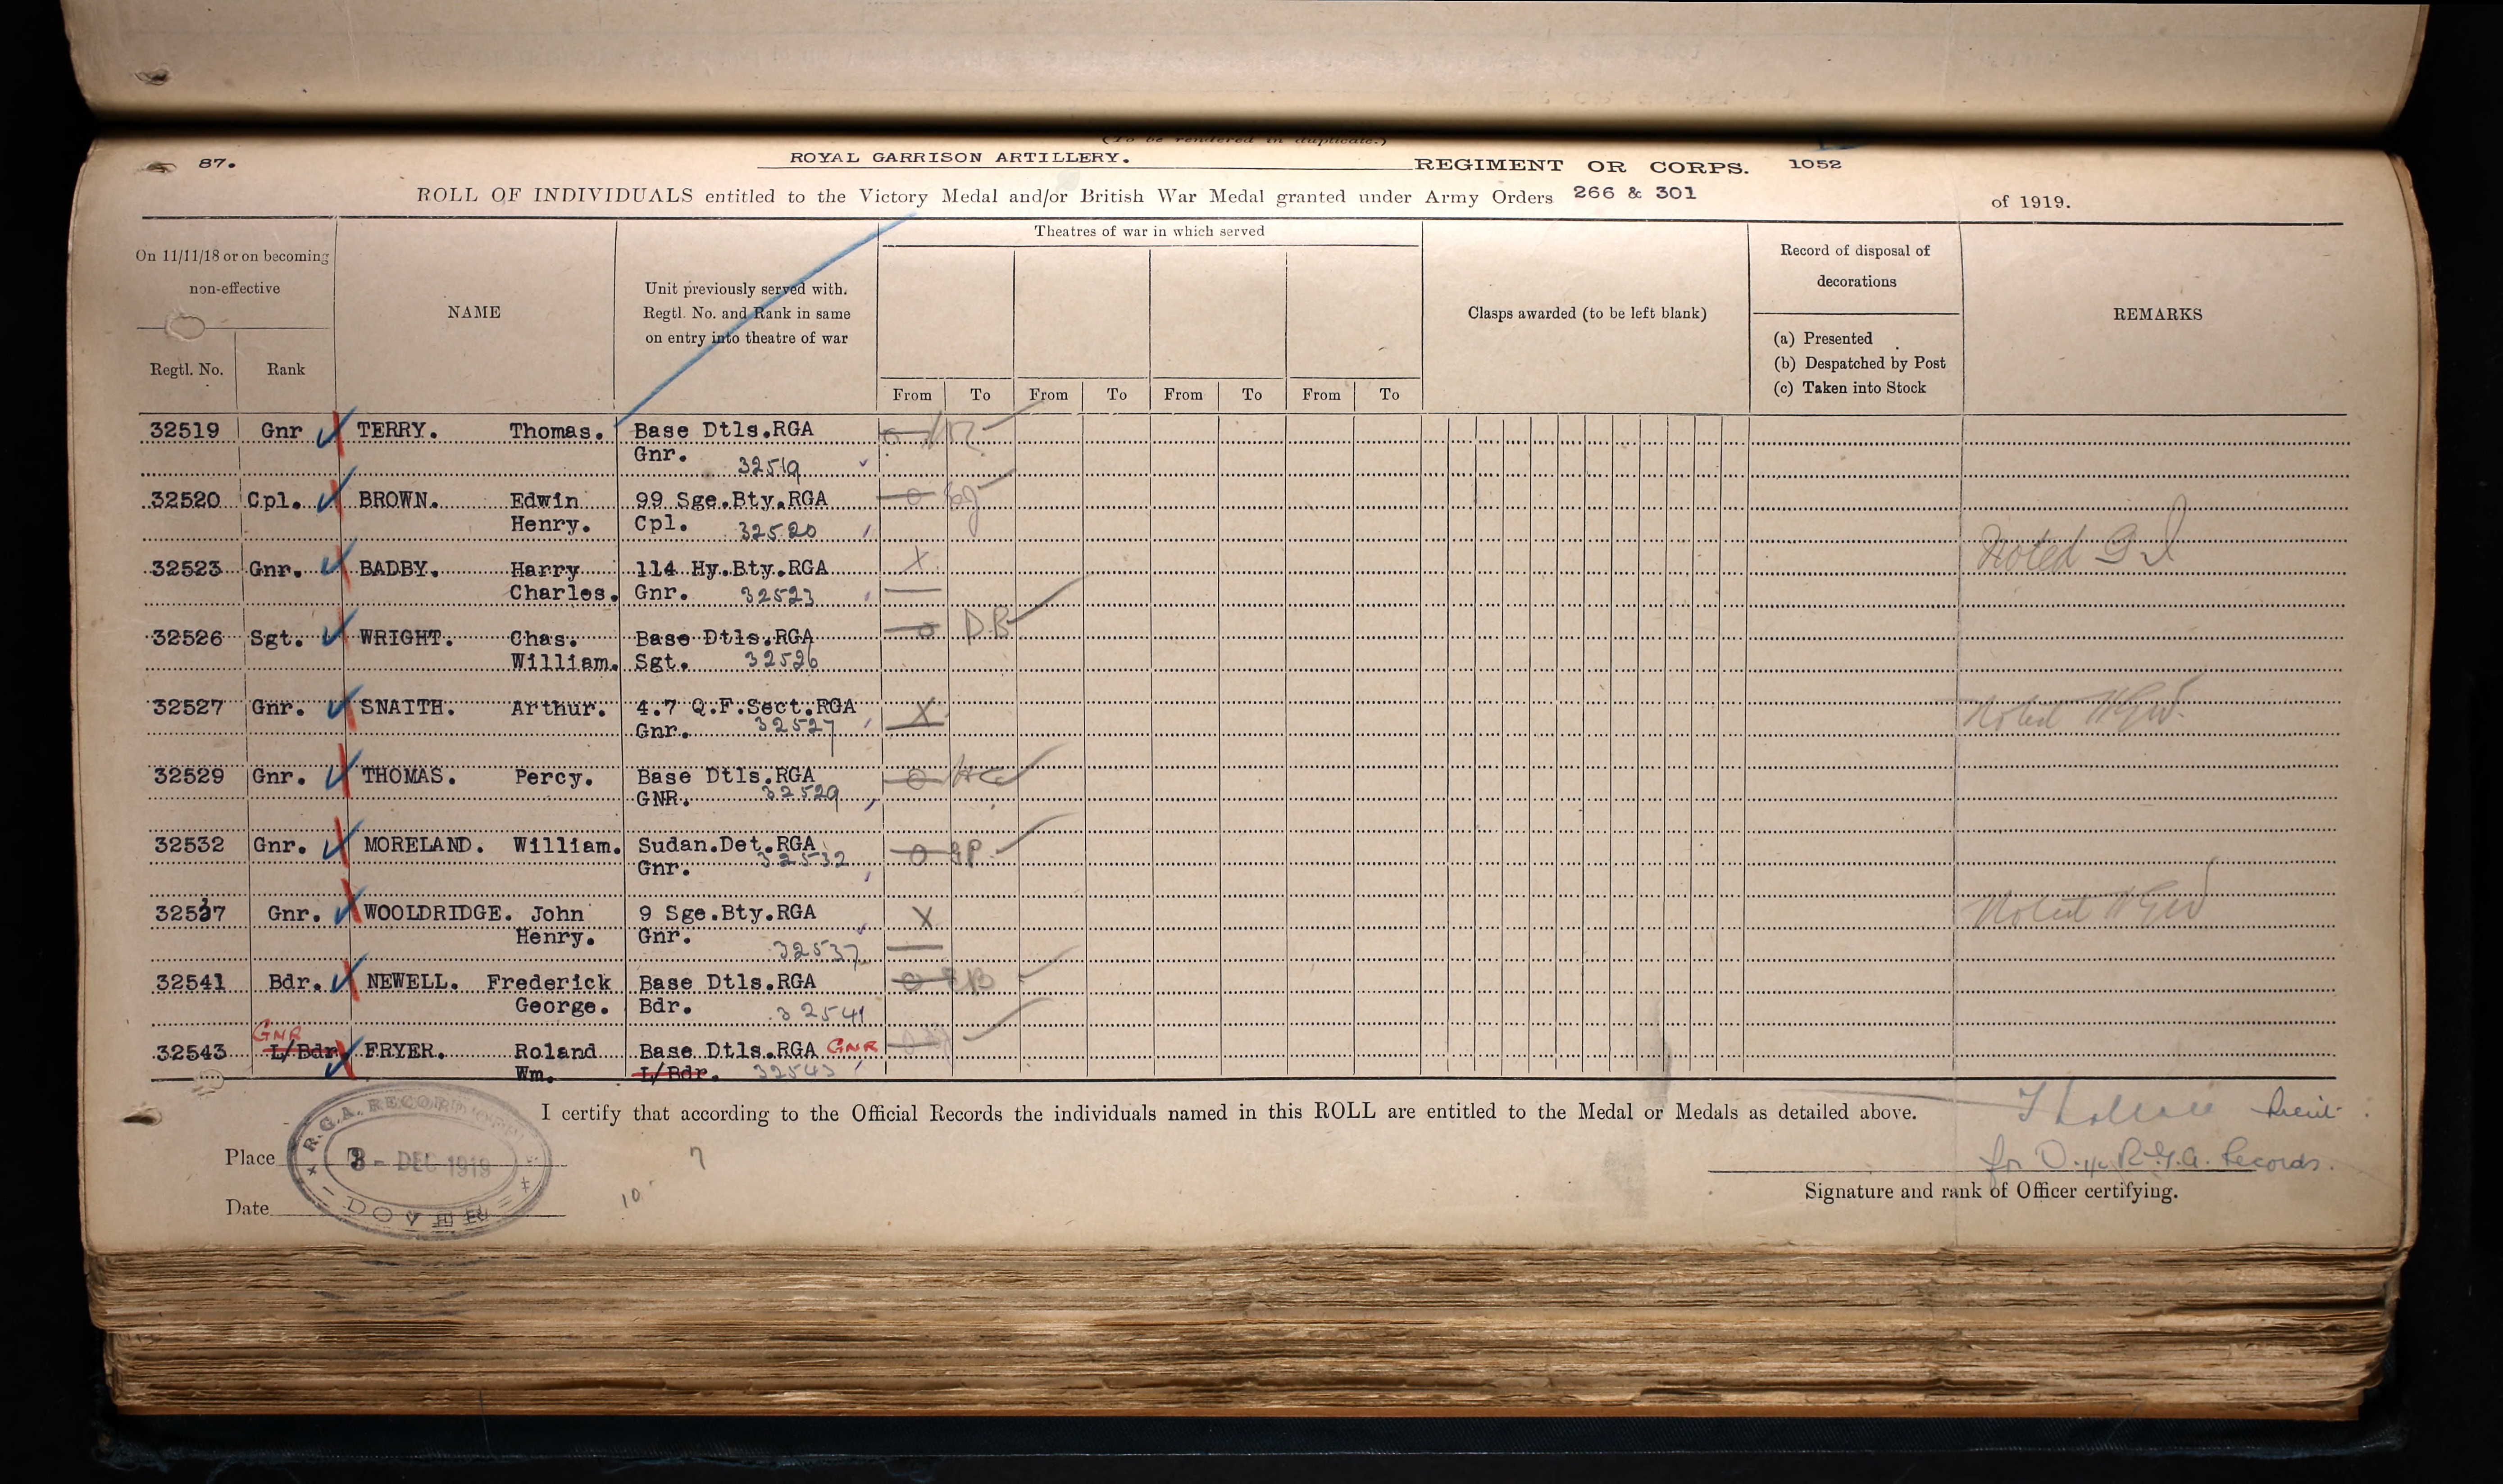 (To be rendered in duplicate.)
87. ROYAL GARRISON ARTILLERY. REGIMENT OR CORPS. 1052
ROLL OF INDIVIDUALS entitled to the Victory Medal and/or British War Medal granted under Army Orders 266 & 301 of 1919.
On 11/11/18 or on becoming non-effective
Regtl. No. Rank
NAME
Unit previously served with.
Regtl. No. and Rank in same
on entry into theatre of war
Theatres of war in which served
From To From To From To From To
Clasps awarded (to be left blank)
Record of disposal of
decorations
(a) Presented
(b) Despatched by Post
(c) Taken into Stock
REMARKS
32519 Gnr TERRY. Thomas. Base Dtls.RGA
Gnr. 32519
32520 Cpl. BROWN. Edwin 99 Sge.Bty.RGA
Henry. Cpl. 32520
32523 Gnr. BADBY. Harry 114 Hy.Bty.RGA X Noted
Charles. Gnr. 32523
32526 Sgt. WRIGHT. Chas. Base Dtls.RGA o D.B
William. Sgt. 32526
32527 Gnr. SNAITH. Arthur. 4.7 Q.F.Sect.RGA X Noted
Gnr. 32527
32529 Gnr. THOMAS. Percy. Base Dtls.RGA o
GNR. 32529
32532 Gnr. MORELAND. William. Sudan.Det.RGA o
Gnr. 32532
32537 Gnr. WOOLDRIDGE. John 9 Sge.Bty.RGA X Noted
Henry. Gnr. 32537
32541 Bdr. NEWELL. Frederick Base Dtls.RGA o
George. Bdr. 32541
GNR
32543 L/Bdr. FRYER. Roland Base Dtls.RGA GNR
Wm. L/Bdr. 32543
I certify that according to the Official Records the individuals named in this ROLL are entitled to the Medal or Medals as detailed above.
Lieut.
for O. i/c R.G.A. Records.
Signature and rank of Officer certifying.
Place
Date
R.G.A. RECORD
- DEC 1919
DOVER
10 7